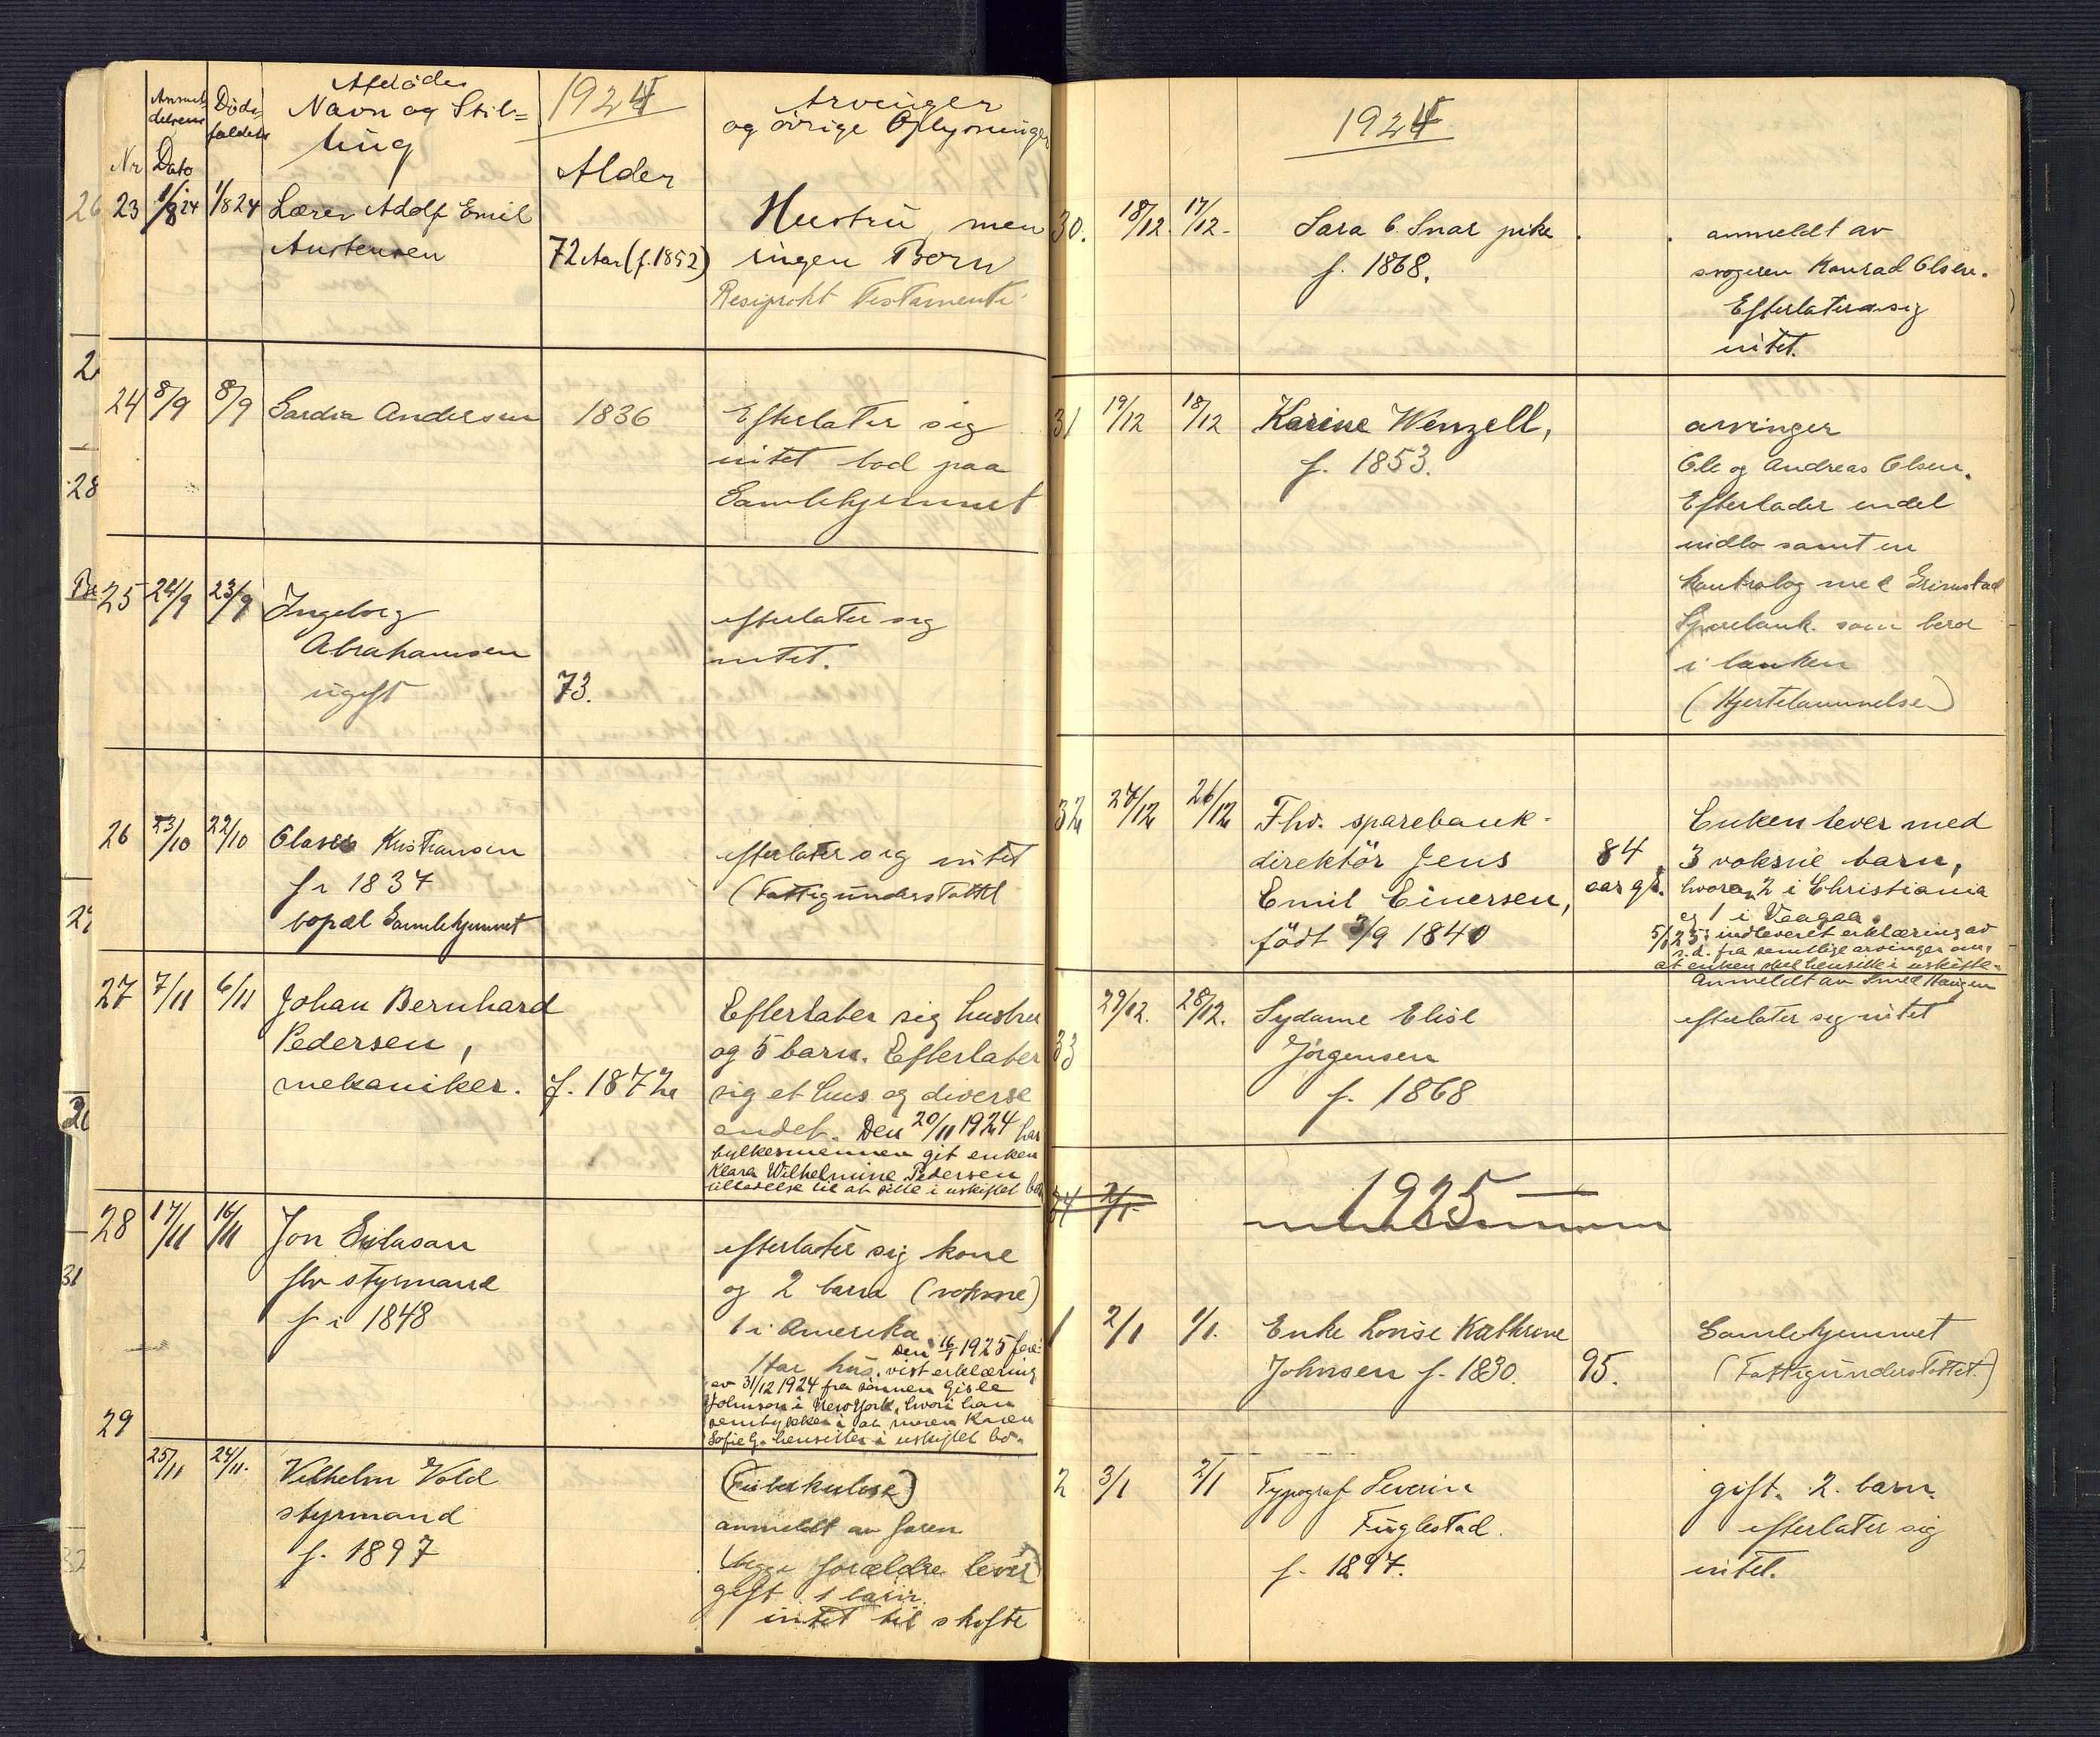 Nr
Anmeldelsens Dato
Dödsfaldets
Afdödes
Navn og Stil=
ling
1924
Alder
Arvinger
og övrige Oplysninger
23 1/8 24 1/8 24 Lærer Adolf Emil
Austensen
72 Aar (f. 1852)
Hustru, men
ingen Born
Resiprokt Testamente
24 8/9 8/9 Gardia Andersen 1836
Efterlater sig
intet bod paa
Gamlehjemmet
25 24/9 23/9 Ingeborg
Abrahamsen
ugift 73.
efterlater sig
intet.
26 23/10 22/10 Olaves Kristiansen
f. 1837
bopæl Gamlehjemmet
efterlater sig intet
(Fattigunderstöttet
27 7/11 6/11 Johan Bernhard
Pedersen,
mekaniker. f. 1872
Efterlater sig hustru
og 5 barn. Efterlater
sig et hus og diverse
andet. Den 20/11 1924 har
fylkesmannen git enken
Klara Wilhelmine Pedersen
tilladelse til at sitte i uskiftet bo
28 17/11 16/11 Jon
fhv styrmand
f i 1848
efterlater sig kone
og 2 barn (voksne)
1 i Amerika.
Den 16/1 1925 fore-
Har hus. vist erklæring
av 31/12 1924 fra sönnen Gisle
Johnson i New York, hvori han
samtykker i at moren Karen
Sofie G. hensitter i uskiftet bo.
29
25/11 24/11. Vilhelm Vold
styrmand
f. 1897
(Tuberkulose)
anmeldt av faren
begge forældre lever)
gift 1 barn.
intet til skifte
1924
30. 18/12. 17/12. Sara O. Snar pike
f. 1868.
anmeldt av
svogeren Konrad Olsen.
Efterlater sig
intet.
31 19/12 18/12 Karine Wenzell,
f. 1853.
arvinger
Ole og Andreas Olsen.
Efterlader endel
indbo samt en
kontrabog med Grimstad
Sparebank. som beror
i banken
(Hjertelammelse)
32 27/12 26/12 Fhv. sparebank-
direktör Jens
Emil Einersen,
födt 3/9 1840
84
aar gl.
Enken lever med
3 voksne barn,
hvorav 2 i Christiania
og 1 i Vaagaa.
5/1 25: indleveret erklæring av
s.d. fra samtlige arvinger om,
at enken skal hensitte i uskifte.
Anmeldt av Smed Haugen
33 29/12. 28/12. Sydame Elise
Jörgensen
f. 1868
efterlater sig intet
34 2/1
1925
1 2/1 1/1. Enke Lovise Kathrine
Johnsen f. 1830. 95.
Gamlehjemmet
(Fattigunderstöttet.)
2 3/1 2/1 Typograf Severin
Fuglestad.
f. 1897.
gift. 2. barn.
efterlater sig
intet.